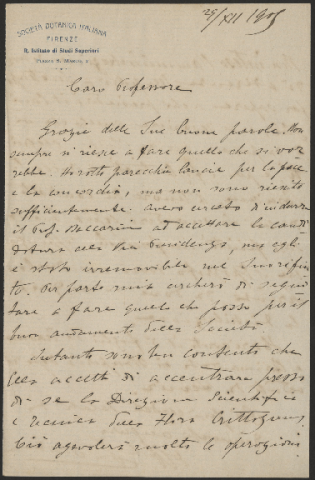 SOCIETÀ BOTANICA ITALIANA
FIRENZE
R. Istituto di Studi Superiori
PIAZZA S. MARCO, 2
25/XII 1905
Caro Professore
Grazie delle Sue buone parole. Non
sempre si riesce a fare quello che si vor
rebbe. Ho rotto parecchie lancie per la pace
e la concordia, ma non sono riescito
sufficientemente. Avevo cercato di indurre
il Prof. Baccarini ad accettare la candi
datura alla Presidenza, ma egli
è stato irremovibile nel
to. Per parte mia cercherò di segui
tare a fare quello che posso per il
buon andamento della Società
Intanto sono ben contento che
Ella accetti di accentrare presso
di se la Direzione Scientifica
e tecnica della Flora Crittogam.
Ciò agevolerà molto le operazioni